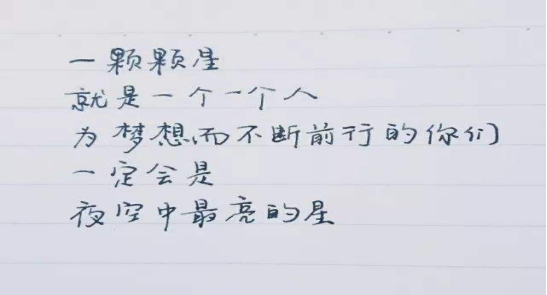 一颗颗星
就是一个一个人
为梦想而不断前行的你们
一定会是
夜空中最亮的星